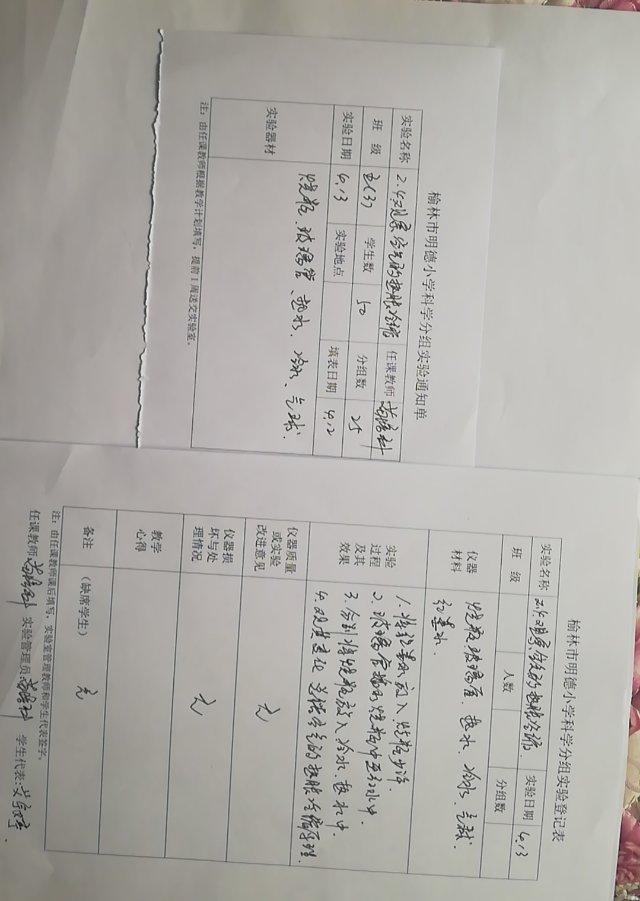 榆林市明德小学科学分组实验通知单
实验名称 2.4观察空气的热胀冷缩 任课教师
班 级 五(3) 学生数 50 分组数 25
实验日期 4.13 实验地点 填表日期 4.12
实验器材 烧瓶、玻璃管、热水、冷水、气球.
注：由任课教师根据教学计划填写，提前1周送交实验室。
榆林市明德小学科学分组实验登记表
实验名称 2.4观察空气的热胀冷缩 实验日期 4.13
班 级 人数 分组数
仪器材料 烧瓶 玻璃管、热水、冷水、气球
红墨水.
实验过程及其效果 1.将红墨水放入烧瓶少许.
2.玻璃管插到烧瓶中至红水中.
3.分别将烧瓶放入冷水、热水中.
4.观其变化 总结空气的热胀冷缩原理.
仪器质量或实验改进意见 无
仪器损坏与处理情况 无
教学心得
备注 （缺席学生） 无
注：由任课教师课后填写，实验室管理教师和学生代表签字。
任课教师: 实验管理员: 学生代表: